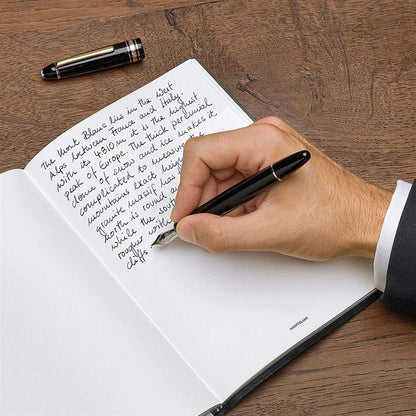 The Mont Blanc lies in the West
Alps between France and Italy.
With its 4810 m it is the highest
peak of Europe. The thick perennial
dome of snow and ice makes it
complicated to measure the
mountains exact heigh
granite massif has
north is round a
while the sout
rougher with
cliffs
MONTBLANC